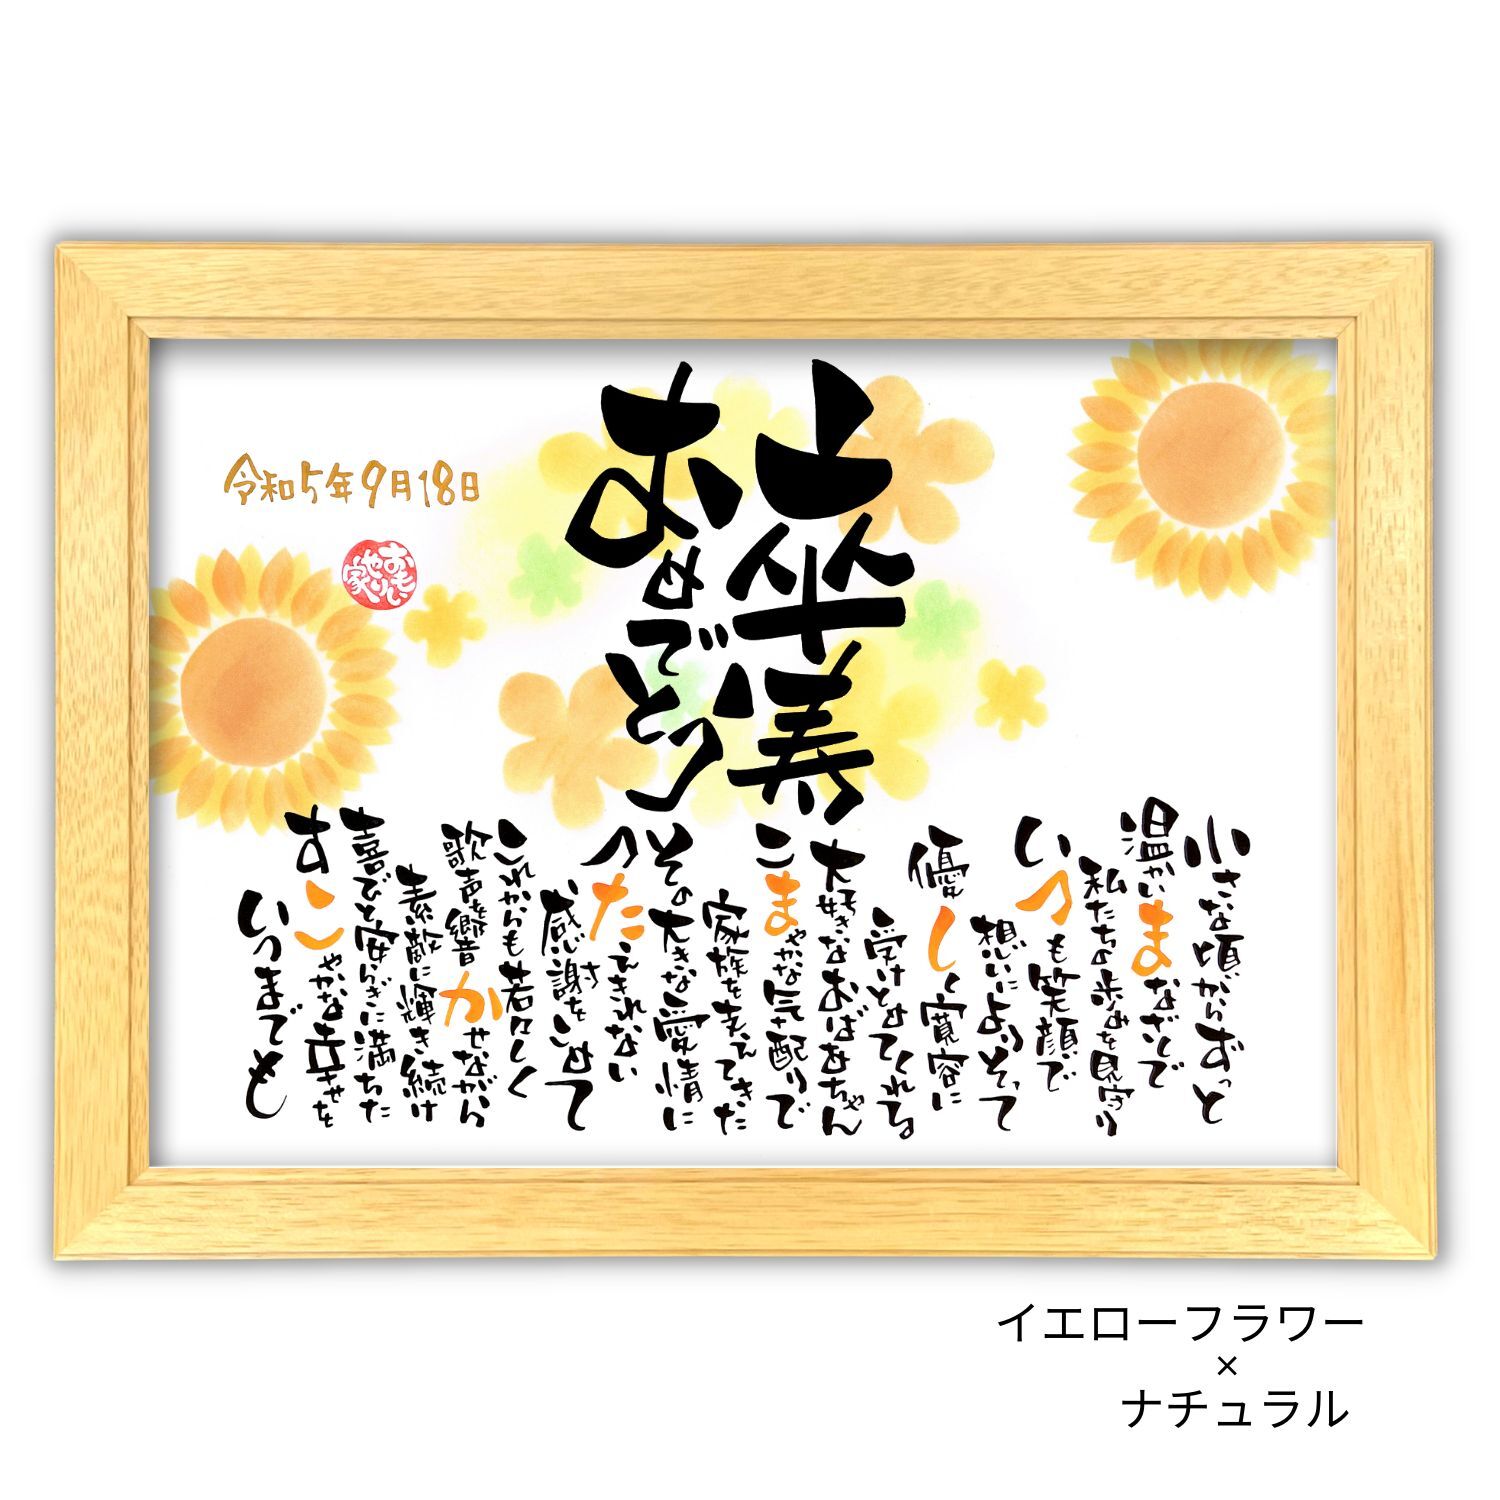 卒寿
おめでとう
令和5年9月18日
おもいやり家
小さな頃からずっと
温かいまなざしで
私たちの歩みを見守り
いつも笑顔で
想いによりそって
優しく寛容に
受けとめてくれる
大好きなおばあちゃん
こまやかな気配りで
家族を支えてきた
その大きな愛情に
つたえきれない
感謝をこめて
これからも若々しく
歌声を響かせながら
素敵に輝き続け
喜びと安らぎに満ちた
すこやかな幸せを
いつまでも
イエローフラワー
×
ナチュラル